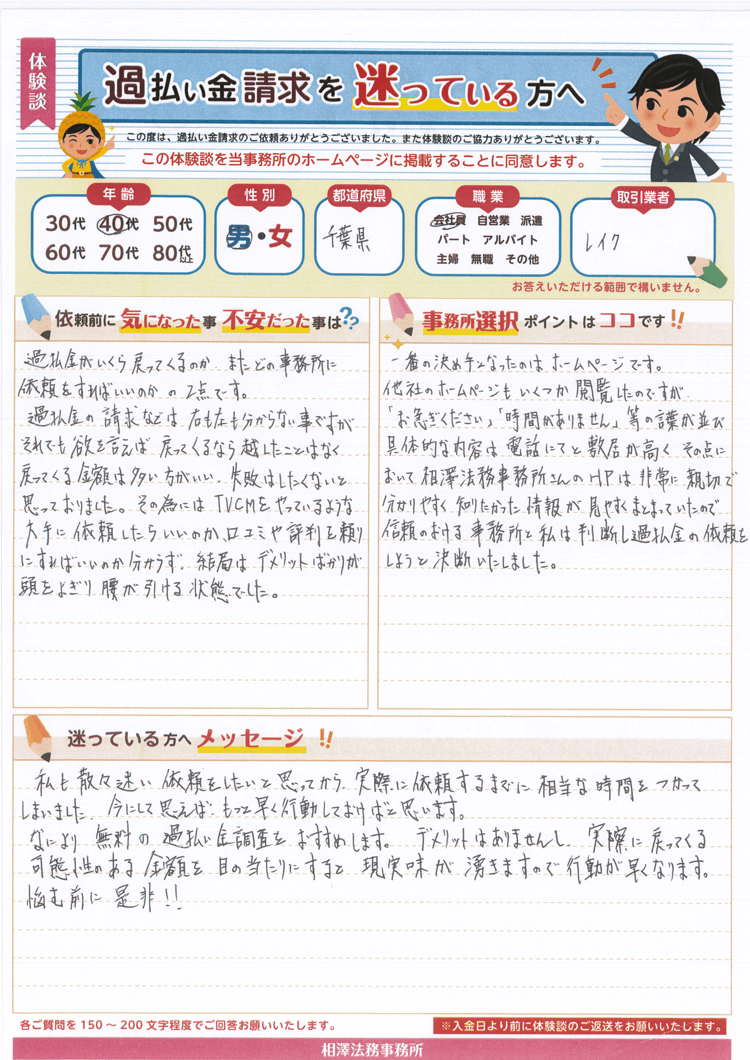 体験談
過払い金請求を迷っている方へ
この度は、過払い金請求のご依頼ありがとうございました。また体験談のご協力ありがとうございます。
この体験談を当事務所のホームページに掲載することに同意します。
年齢
30代 40代 50代
60代 70代 80代以上
性別
男・女
都道府県
千葉県
職業
会社員 自営業 派遣
パート アルバイト
主婦 無職 その他
取引業者
レイク
お答えいただける範囲で構いません。
依頼前に気になった事 不安だった事は??
過払金がいくら戻ってくるのか、またどの事務所に
依頼をすればいいのかの2点です。
過払金の請求などは右も左も分からない事ですが
それでも欲を言えば戻ってくるなら越したことはなく
戻ってくる金額は多い方がいい、失敗はしたくないと
思っておりました。その為にはTVCMをやっているような
大手に依頼したらいいのか、口コミや評判を頼り
にすればいいのか分からず、結局はデメリットばかりが
頭をよぎり腰が引ける状態でした。
事務所選択ポイントはココです!!
一番の決め手となったのはホームページです。
他社のホームページもいくつか閲覧したのですが
「お急ぎください」「時間がありません」等の言葉が並び
具体的な内容は電話にてと敷居が高く、その点に
おいて相澤法務事務所さんのHPは非常に親切で
分かりやすく知りたかった情報が見やすくまとまっていたので
信頼のおける事務所と私は判断し過払金の依頼を
しようと決断いたしました。
迷っている方へメッセージ!!
私も散々迷い依頼をしたいと思ってから、実際に依頼するまでに相当な時間をつかって
しまいました。今にして思えば、もっと早く行動しておけばと思います。
なにより無料の過払い金調査をおすすめします。デメリットはありませんし、実際に戻ってくる
可能性のある金額を目の当たりにすると現実味が湧きますので行動が早くなります。
悩む前に是非!!
各ご質問を150～200文字程度でご回答お願いいたします。
※入金日より前に体験談のご返送をお願いいたします。
相澤法務事務所